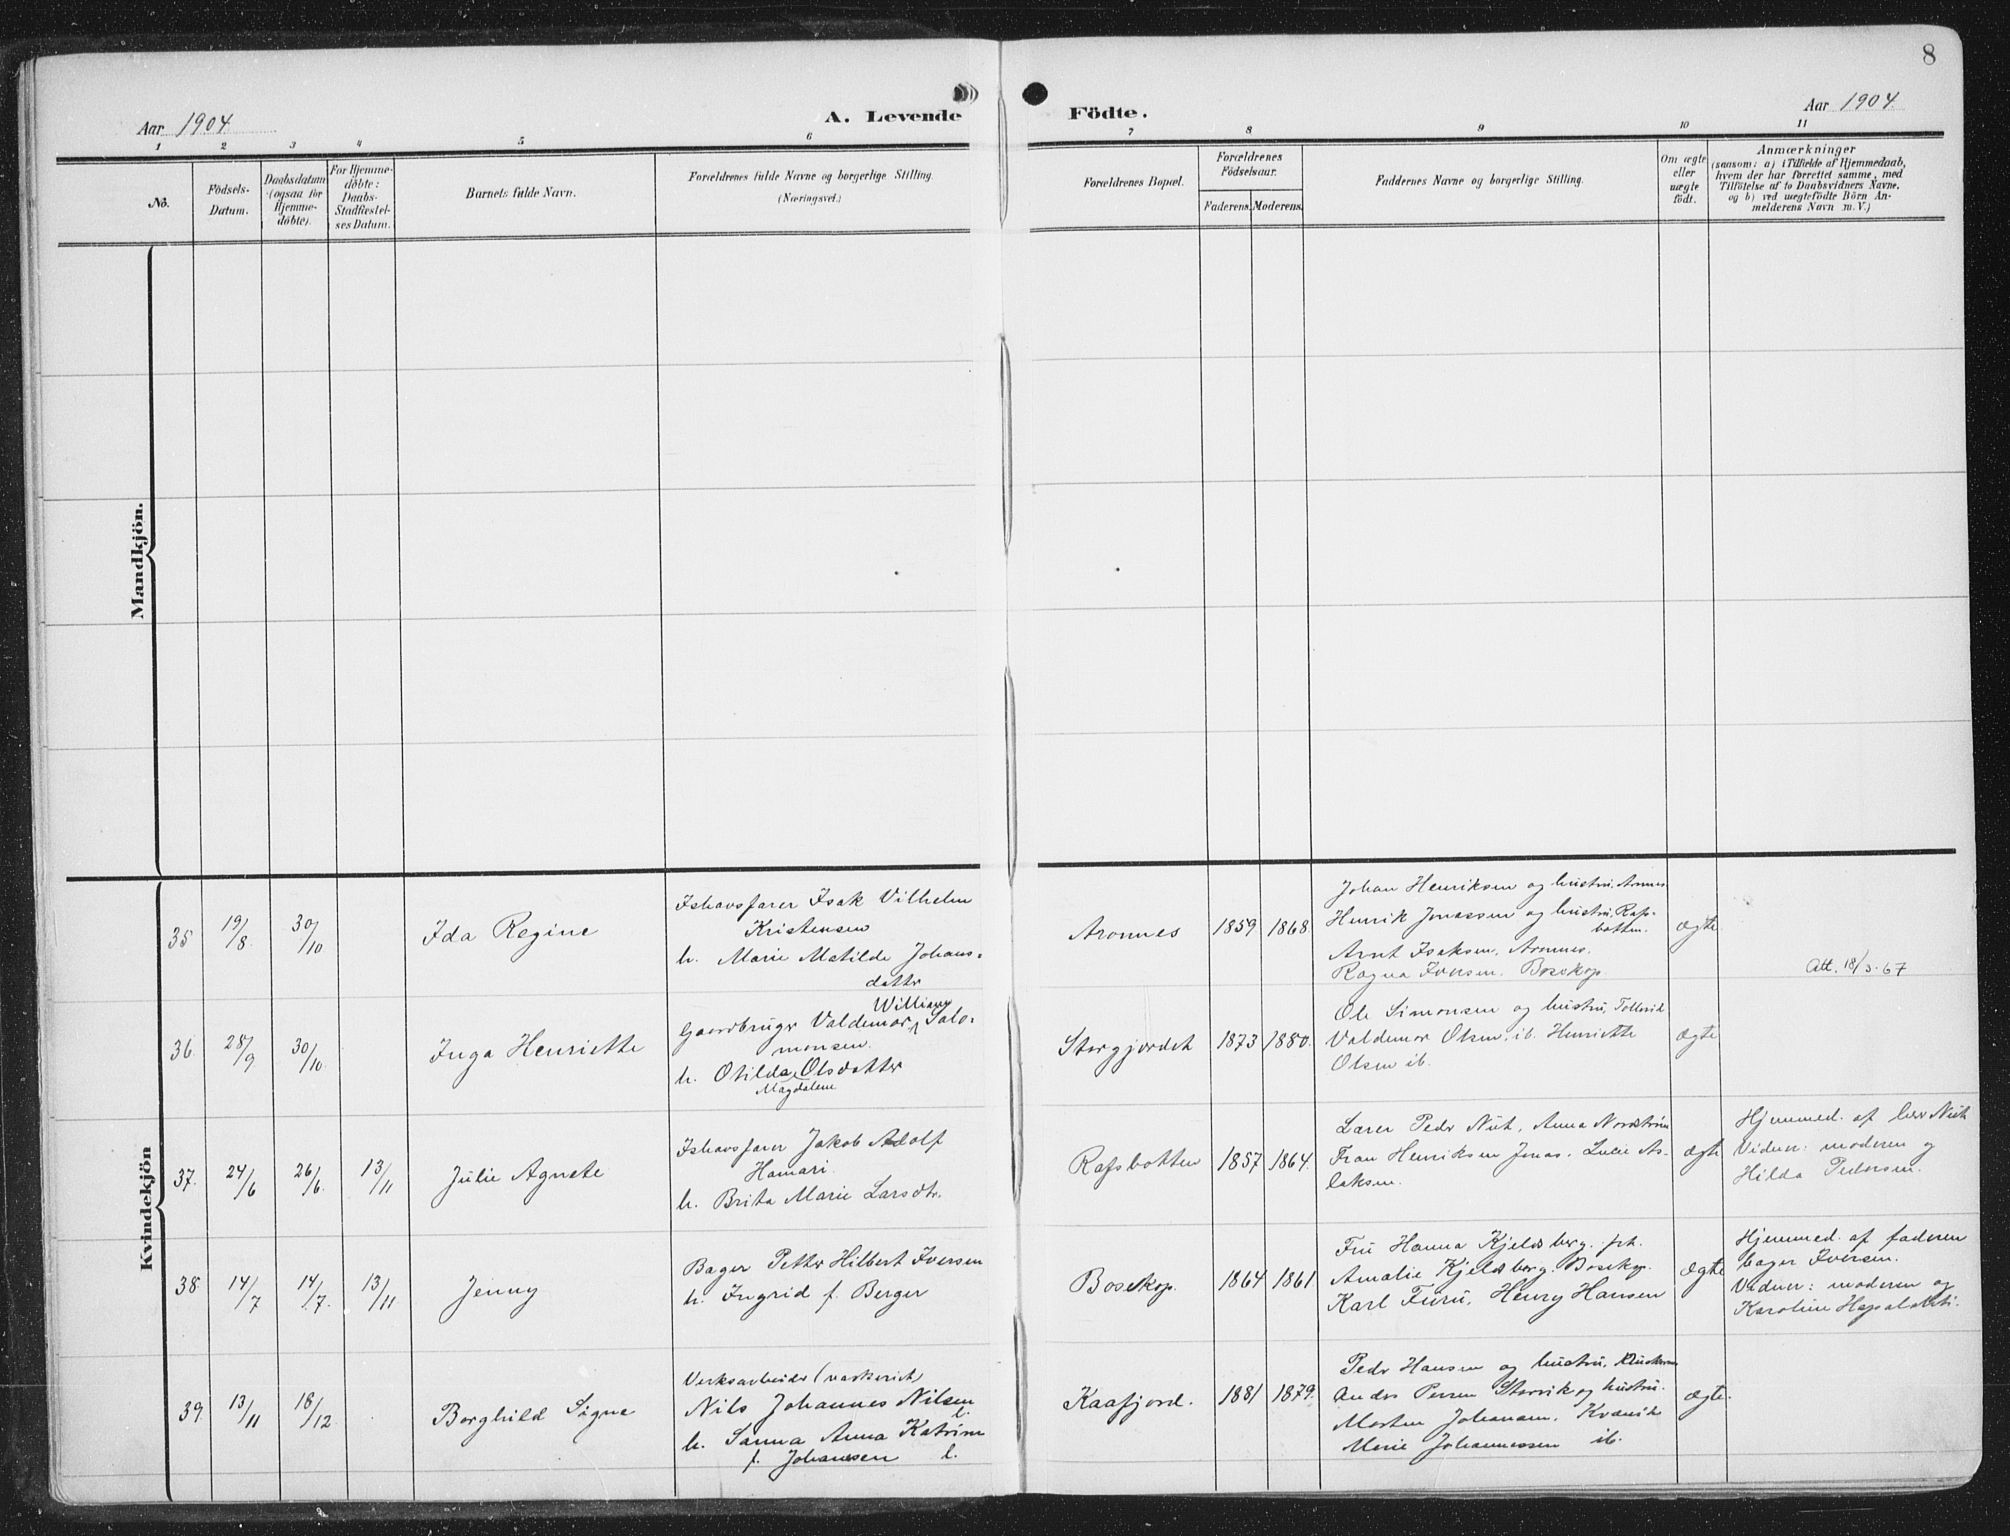 8
Aar 1904
A. Levende
Födte.
Aar 1904
1 2 3 4 5 6 7 8 9 10 11
No.
Födsels-
Datum.
Daabsdatum
(ogsaa for
Hjemme-
døbte).
For Hjemme-
døbte:
Daabs-
Stadfæstel-
ses Datum.
Barnets fulde Navn.
Forældrenes fulde Navne og borgerlige Stilling.
(Næringsvei.)
Forældrenes Bopæl.
Forældrenes
Födselsaar.
Faderens. Moderens.
Faddernes Navne og borgerlige Stilling.
Om ægte
eller
uægte
födt.
Anmærkninger
(saasom: a) i Tilfælde af Hjemmedaab,
hvem der har forrettet samme, med
Tilföielse af to Daabsvidners Navne,
og b) ved uægtefödte Börn An-
melderens Navn m. V.)
Mandkjön.
Kvindekjön
35 19/8 30/10
Ida Regine
Ishavsfarer Isak Vilhelm
Kristensen
h. Marie Matilde Johans-
datter
Aronnes
1859 1868.
Johan Henriksen og hustru, Aronnes
Henrik Jonassen og hustru, Rafs-
botten.
Arnt Isaksen, Aronnes.
Ragna Iversen, Bosekop.
ægte
Att. 18/3-67
36. 28/9 30/10
Inga Henriette
William
Gaardbruger Valdemar Salo-
monsen.
h. Otilde Olsdatter
Magdalene
Storgjordet
1873 1880.
Ole Simonsen og hustru, Tollevik
Valdemar Olsen, ib. Henriette
Olsen ib.
ægte
37. 24/6 26/6 13/11
Julie Agnete
Ishavsfarer Jakob Adolf
Hamari.
h. Brita Marie Larsdtr.
Rafsbotten
1857 1864.
Lærer Peder Nut, Anna Nordström
Fran Henriksen Jonas. Lucie As-
laksen.
ægte
Hjemmed. af lær Nut
Vidner: moderen og
Hilda Pedersen.
38. 14/7 14/7 13/11
Jenny
Bager Petter Hilbert Iversen
h. Ingrid f. Berger
Bosekop.
1864 1861.
Fru Hanna Kjeldsberg. frk.
Amalie Kjeldsberg. Bosekop.
Karl Furu, Henry Hansen
ægte
Hjemmed. af faderen
bager Iversen.
Vidner: moderen og
39. 13/11 18/12
Borghild Signe
Verksarbeider
Nils Johannes Nilsen
l.
h. Sanna Anna Katrine
f. Johannesen l.
Kaafjord.
1881 1879.
Peder Hansen og hustru,
Anders Persen Storvik og hustru.
Morten Johansen, Kvænvik
Marie Johannessen ib.
ægte.